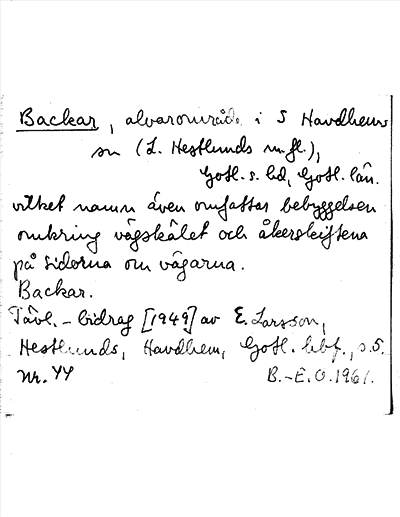 Backar, alvarområde i S Havdhems
sn (L. Hestlunds m.fl.),
Gotl. s. hd, Gotl. län.
vilket namn även omfattar bebyggelsen
omkring vägskälet och åkerskiftena
på sidorna om vägarna.
Backar.
Tävl.-bidrag [1949] av E. Larsson,
Hestlunds, Havdhem, Gotl. hbf., s.5.
Nr. 44
B.-E.O.1961.